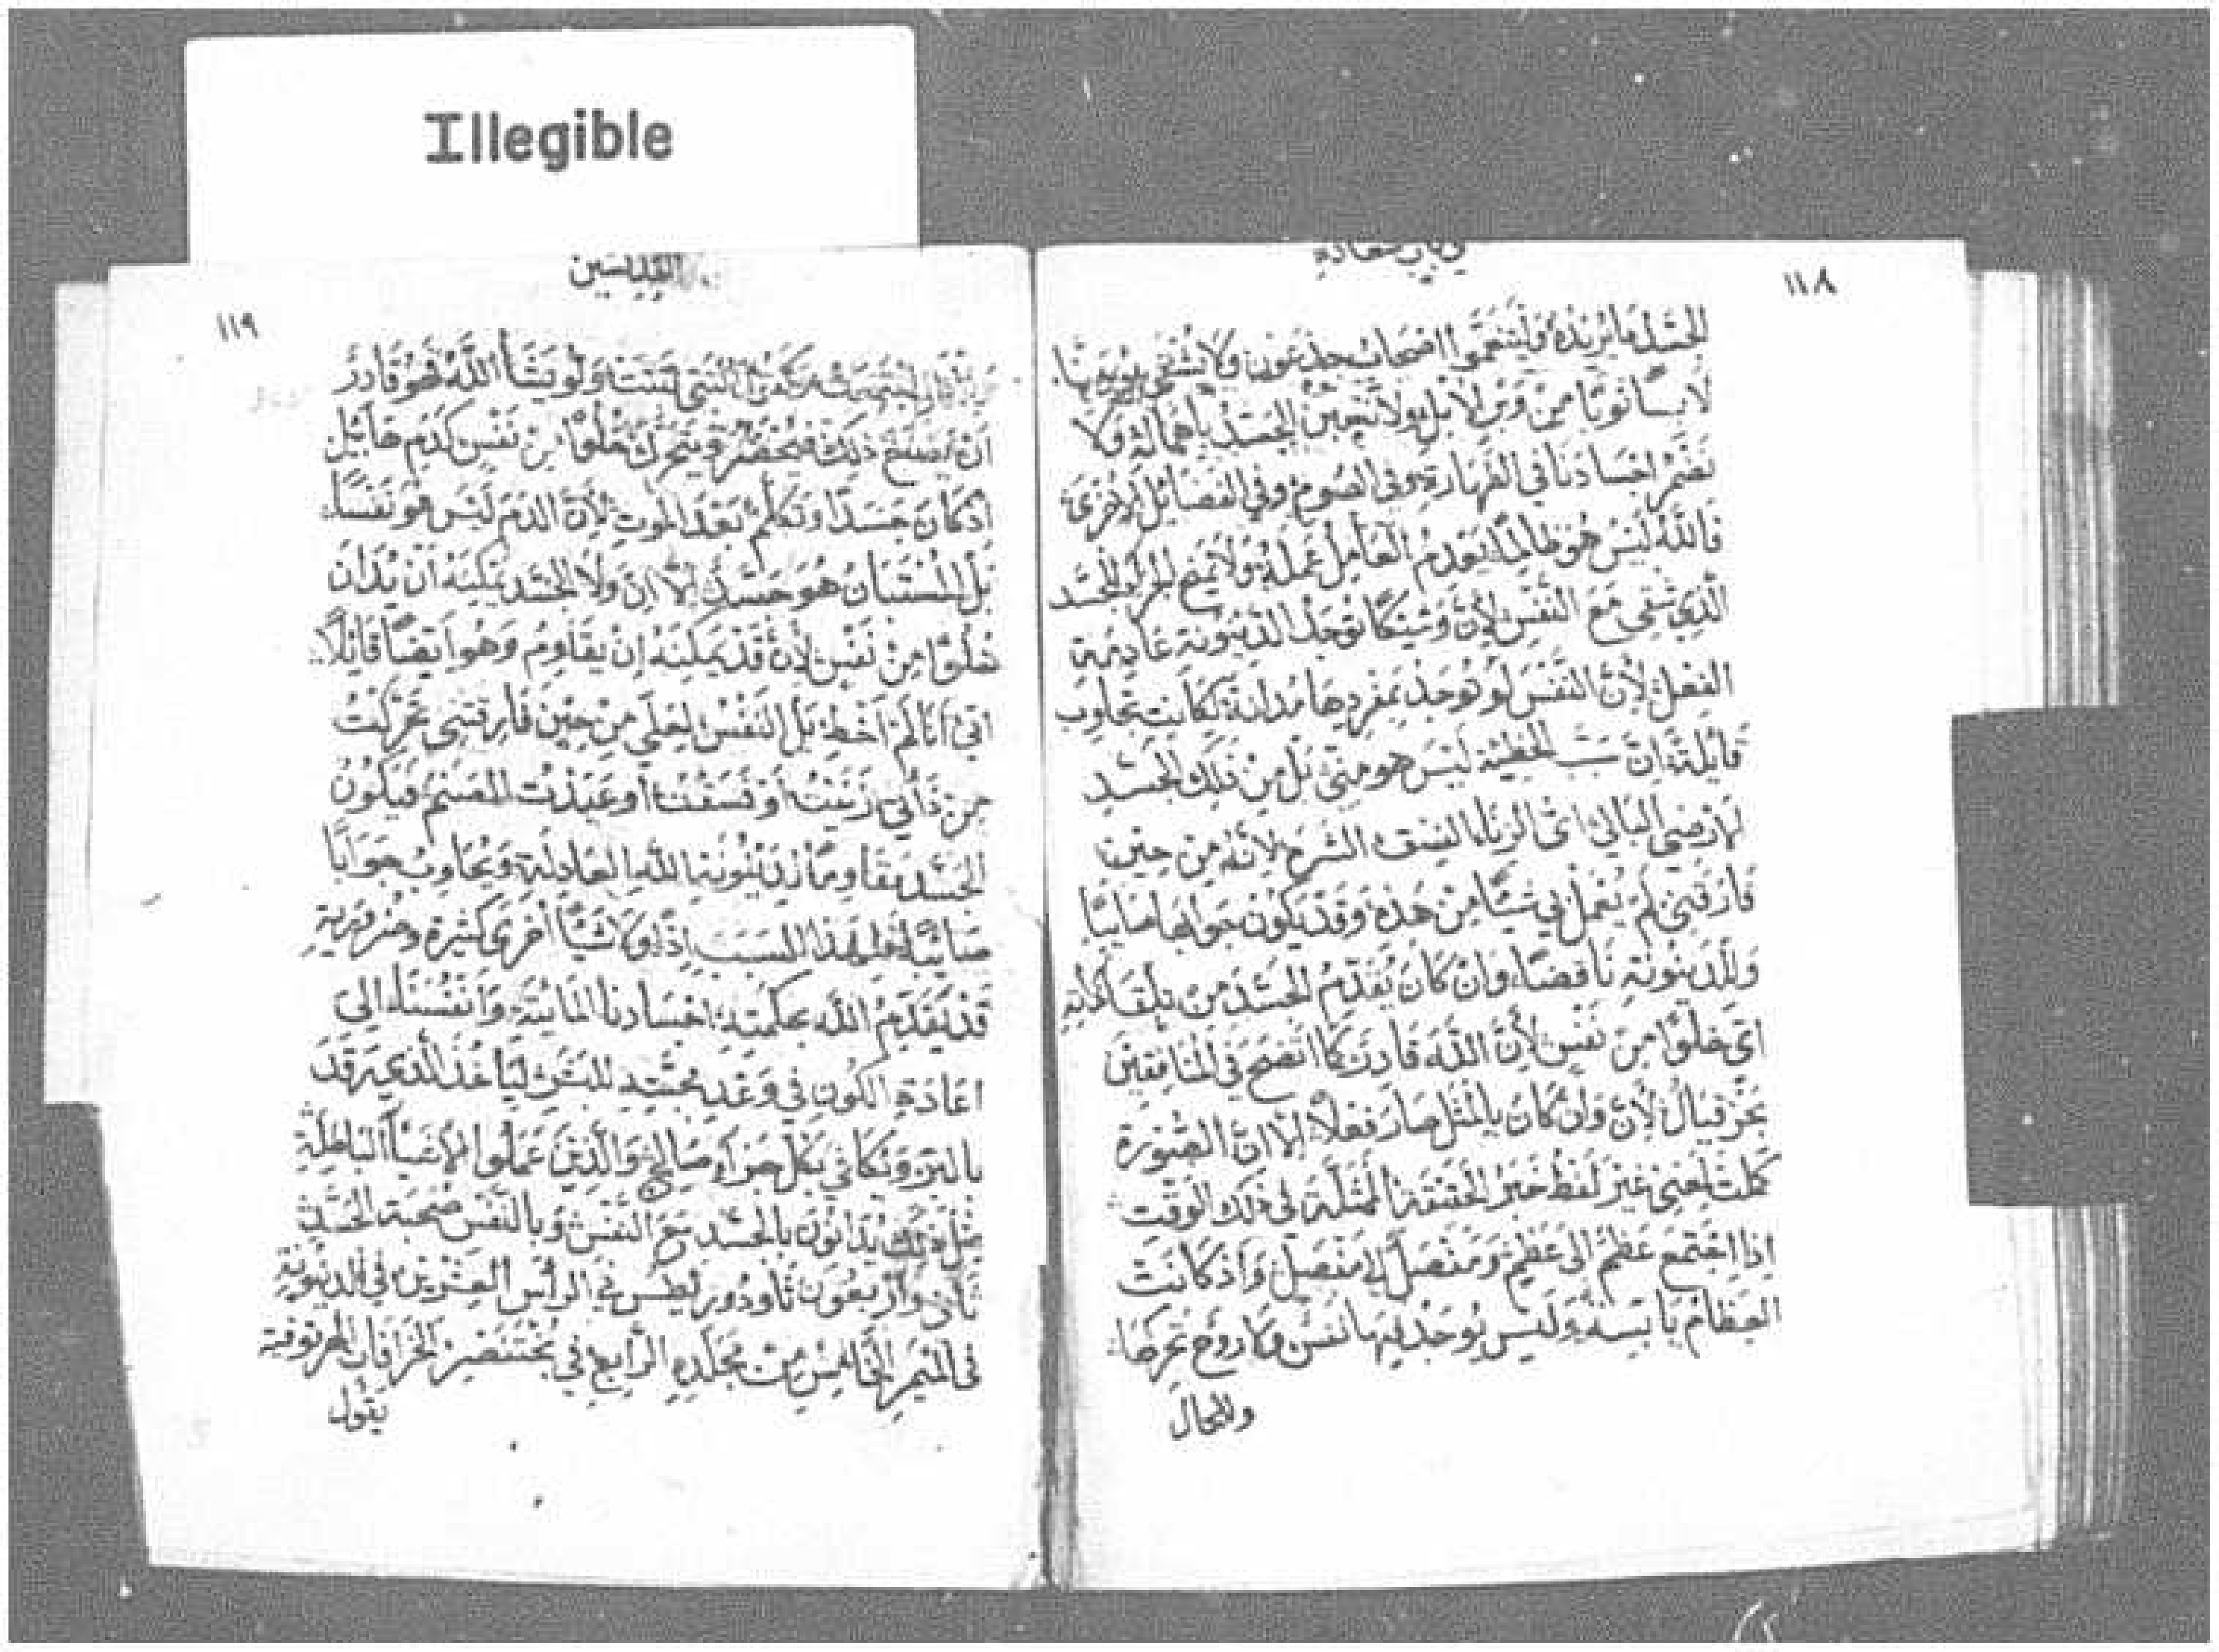 Illegible
١١٨
الجسد ما يريده وليتنعموا اصحاب جذعون ولا نشقي يوحنا
لابسًا ثوبًا من وبر الابل ولا نحبس الجسد باهماله ولا
نضمر اجسادنا في الطهارة وفي الصوم وفي الفضائل الاخرى
فالله ليس هو ظالمًا ليعدم العامل عمله ولا يمنع الجسد
الذي شقي مع النفس لأنّ وشيكًا توجد الدينونة عادمة
الفعل لأنّ النفس لو توجد بمفردها مدانة لكانت تجاوب
قايلة ان سبب الخطية ليس هو منّي بل من ذلك الجسد
الارضي البالي اعني الزناء الفسق الشره لانه من حين
فارقني لم يعمل بي شيًا من هذه وقد يكون جوابها صايبًا
وللدينونة ناقضًا وان كان يقدّم الجسد من تلقا ذاته
اي خلوًا من نفس لأنّ الله قادر كما اتضح في المنافقين
بحزقيال لأنّ وان كان بالمثل صار فعلًا إلّا انّ الصورة
كملت لمعنى غير لفظ خبر الحقيقة الممثلة في ذلك الوقت
اذا اجتمع عظم الى عظم ومفصل الى مفصل واذ كانت
العظام يابسة وليس يوجد فيها نفس ولا روح تحركها
وللحال
القديسين
١١٩
ولو يشأ الله فهو قادر
ان يصنع ذلك فيحضر ويتحرك خلوًا من نفس كدم هابيل
اذ كان جسدًا وتكلم بعد الموت لأنّ الدم ليس هو نفسًا
بل المستبان هو جسد إلّا انّ ولا الجسد يمكنه أن يدان
خلوًا من نفس لأن قد يمكنه ان يقاوم وهو ايضًا قائلًا
اني انا لم أخطِ بل النفس لعلي من حين فارقتني تحركت
من ذاتي زنيت أو فسقت أو عبدت للصنم فيكون
الجسد مقاومًا لدينونة الله العادلة ويجاوب جوابًا
صائبًا فلهذا السبب إذًا ولأشيًا أخرى كثيرة وضرورية
قد يقدم الله بحكمته اجسادنا المايتة وانفسنا الى
اعادة الكون في وعد مجسّد للبشر ليأخذ الذي رقد
بالبر ويكافي بكل جزاء صالح والذين عملوا الاشيأ الباطلة
مثل ذلك يدانون بالجسد مع النفس وبالنفس صحبة الجسد
ثاني وأربعون ثاودوريطس في الرأس العشرين في الدينونة
في الميمر الخامس من مجلده الرابع في الخرافات الهرتوقية
يقول